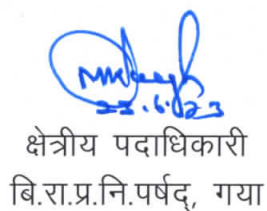 22.6.23
क्षेत्रीय पदाधिकारी
बि.रा.प्र.नि.पर्षद्, गया